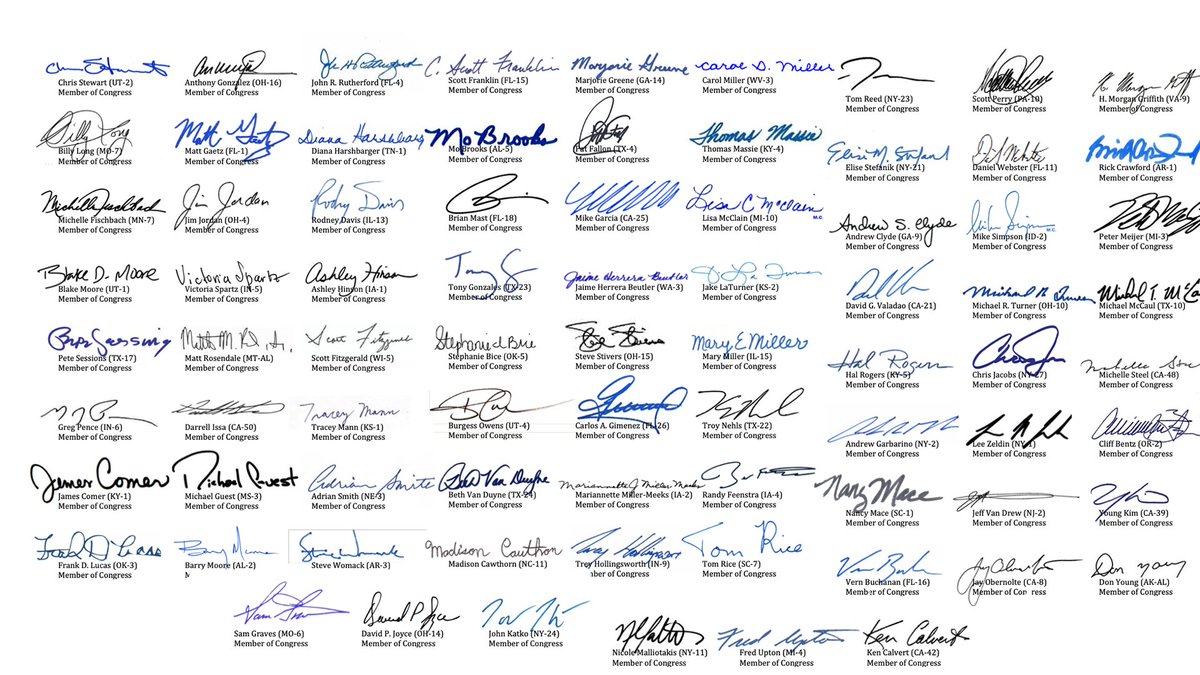 Chris Stewart (UT-2)
Member of Congress
Anthony Gonzalez (OH-16)
Member of Congress
John R. Rutherford (FL-4)
Member of Congress
C. Scott Franklin
Scott Franklin (FL-15)
Member of Congress
Marjorie Greene
Marjorie Greene (GA-14)
Member of Congress
Carol D. Miller
Carol Miller (WV-3)
Member of Congress
Tom Reed (NY-23)
Member of Congress
Scott Perry (PA-10)
Member of Congress
H. Morgan Griffith
H. Morgan Griffith (VA-9)
Member of Congress
Billy Long
Billy Long (MO-7)
Member of Congress
Matt Gaetz
Matt Gaetz (FL-1)
Member of Congress
Diana Harshbarger
Diana Harshbarger (TN-1)
Member of Congress
Mo Brooks
Mo Brooks (AL-5)
Member of Congress
Pat Fallon (TX-4)
Member of Congress
Thomas Massie
Thomas Massie (KY-4)
Member of Congress
Elise M. Stefanik
Elise Stefanik (NY-21)
Member of Congress
Daniel Webster (FL-11)
Member of Congress
Rick Crawford (AR-1)
Member of Congress
Michelle Fischbach
Michelle Fischbach (MN-7)
Member of Congress
Jim Jordan
Jim Jordan (OH-4)
Member of Congress
Rodney Davis
Rodney Davis (IL-13)
Member of Congress
Brian Mast (FL-18)
Member of Congress
Mike Garcia (CA-25)
Member of Congress
Lisa C. McClain M.C.
Lisa McClain (MI-10)
Member of Congress
Andrew S. Clyde
Andrew Clyde (GA-9)
Member of Congress
Mike Simpson M.C.
Mike Simpson (ID-2)
Member of Congress
Peter Meijer (MI-3)
Member of Congress
Blake D. Moore
Blake Moore (UT-1)
Member of Congress
Victoria Spartz
Victoria Spartz (IN-5)
Member of Congress
Ashley Hinson
Ashley Hinson (IA-1)
Member of Congress
Tony Gonzales (TX-23)
Member of Congress
Jaime Herrera Beutler
Jaime Herrera Beutler (WA-3)
Member of Congress
Jake LaTurner (KS-2)
Member of Congress
David G. Valadao (CA-21)
Member of Congress
Michael R. Turner
Michael R. Turner (OH-10)
Member of Congress
Michael T. McCa
Michael McCaul (TX-10)
Member of Congress
Pete Sessions
Pete Sessions (TX-17)
Member of Congress
Matt Rosendale (MT-AL)
Member of Congress
Scott Fitzgerald
Scott Fitzgerald (WI-5)
Member of Congress
Stephanie Bice
Stephanie Bice (OK-5)
Member of Congress
Steve Stivers
Steve Stivers (OH-15)
Member of Congress
Mary E Miller
Mary Miller (IL-15)
Member of Congress
Hal Rogers
Hal Rogers (KY-5)
Member of Congress
Chris Jacobs (NY-27)
Member of Congress
Michelle Steel (CA-48)
Member of Congress
Greg Pence (IN-6)
Member of Congress
Darrell Issa (CA-50)
Member of Congress
Tracey Mann
Tracey Mann (KS-1)
Member of Congress
Burgess Owens (UT-4)
Member of Congress
Carlos A. Gimenez (FL-26)
Member of Congress
Troy Nehls (TX-22)
Member of Congress
Andrew Garbarino (NY-2)
Member of Congress
Lee Zeldin (NY-1)
Member of Congress
Cliff Bentz (OR-2)
Member of Congress
James Comer
James Comer (KY-1)
Member of Congress
Michael Guest
Michael Guest (MS-3)
Member of Congress
Adrian Smith
Adrian Smith (NE-3)
Member of Congress
Beth Van Duyne
Beth Van Duyne (TX-24)
Member of Congress
Mariannette J. Miller-Meeks
Mariannette Miller-Meeks (IA-2)
Member of Congress
Randy Feenstra (IA-4)
Member of Congress
Nancy Mace
Nancy Mace (SC-1)
Member of Congress
Jeff Van Drew (NJ-2)
Member of Congress
Young Kim (CA-39)
Member of Congress
Frank D Lucas
Frank D. Lucas (OK-3)
Member of Congress
Barry Moore
Barry Moore (AL-2)
M
Steve Womack
Steve Womack (AR-3)
Member of Congress
Madison Cawthorn
Madison Cawthorn (NC-11)
Member of Congress
Trey Hollingsworth
Trey Hollingsworth (IN-9)
ber of Congress
Tom Rice
Tom Rice (SC-7)
Member of Congress
Vern Buchanan
Vern Buchanan (FL-16)
Member of Congress
Jay Obernolte
Jay Obernolte (CA-8)
Member of Co ress
Don Young
Don Young (AK-AL)
Member of Congress
Sam Graves
Sam Graves (MO-6)
Member of Congress
David P. Joyce
David P. Joyce (OH-14)
Member of Congress
John Katko (NY-24)
Member of Congress
Nicole Malliotakis (NY-11)
Member of Congress
Fred Upton
Fred Upton (MI-4)
Member of Congress
Ken Calvert
Ken Calvert (CA-42)
Member of Congress